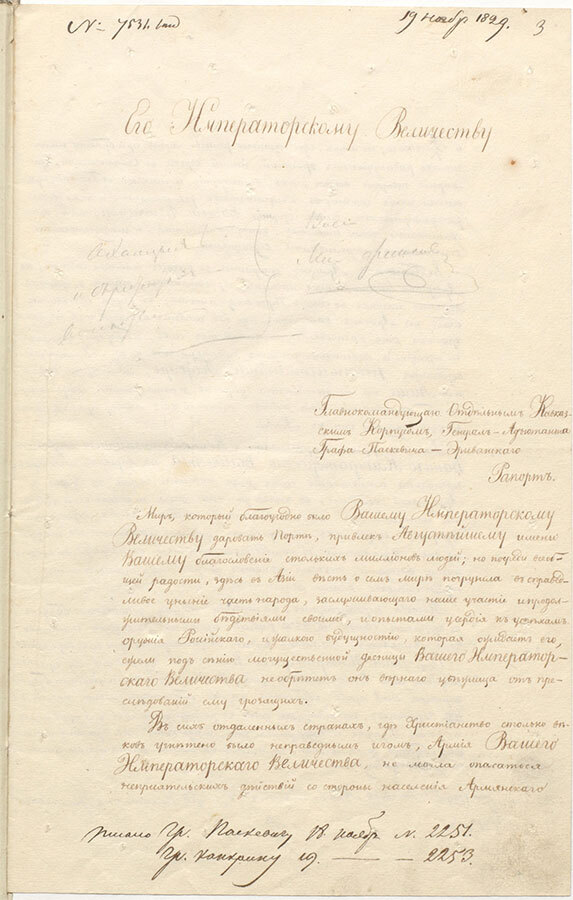 № 7531.
19 ноябр 1829. 3
Его Императорскому Величеству
Главнокомандующаго Отдѣльнымъ Кавказ-
скимъ Корпусомъ, Генерал-Адъютанта
Графа Паскевича-Эриванскаго
Рапортъ.
Миръ, который благоугодно было Вашему Императорскому
Величеству даровать Портѣ, привлекъ Августѣйшему имени
Вашему благословенія столькихъ милліоновъ людей; но посреди всеоб-
щей радости, здѣсь въ Азіи вѣсть о семъ мирѣ погрузила въ справед-
ливое уныніе часть народа, заслуживающаго наше участіе и продол-
жительными бѣдствіями своими, и опытами усердія къ успѣхамъ
оружія Россійскаго, и жалкою будущностію, которая ожидаетъ его,
если подъ сѣнію могущественной десницы Вашего Император-
скаго Величества необрѣтитъ онъ вѣрнаго убѣжища отъ пре-
слѣдованій ему грозящихъ.
Въ сихъ отдаленныхъ странахъ, гдѣ Христіанство столько вѣ-
ковъ угнѣтено было неправеднымъ игомъ, Армія Вашего
Императорскаго Величества, не могла опасаться
непріятельскихъ дѣйствій со стороны населенія Армянскаго
писано Гр. Паскевичу 18 ноябр N. 2251.
Гр. Канкрину 19. — — 2253.